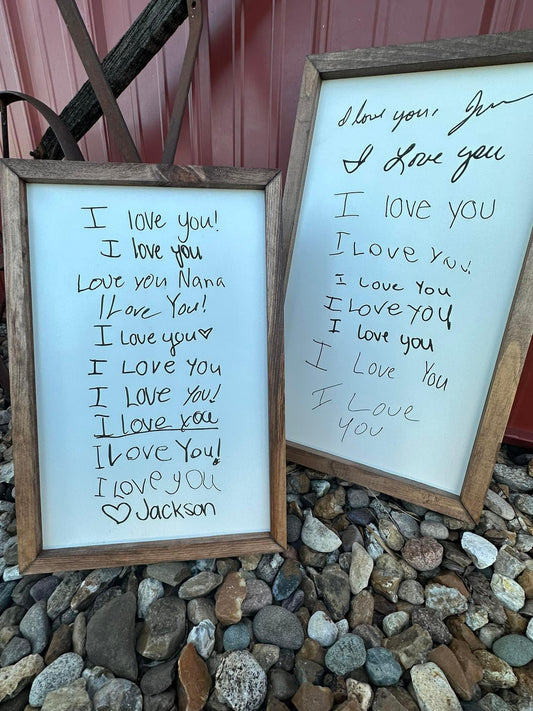 I love you!
I love you
Love you Nana
I Love You!
I Love you♡
I Love You
I Love You!
I love you
I Love You!
I Love you
♡Jackson
I love you, Jim
I Love you
I love you
I Love You!
I Love You
I Love you
I love you
I Love You
I Love
you